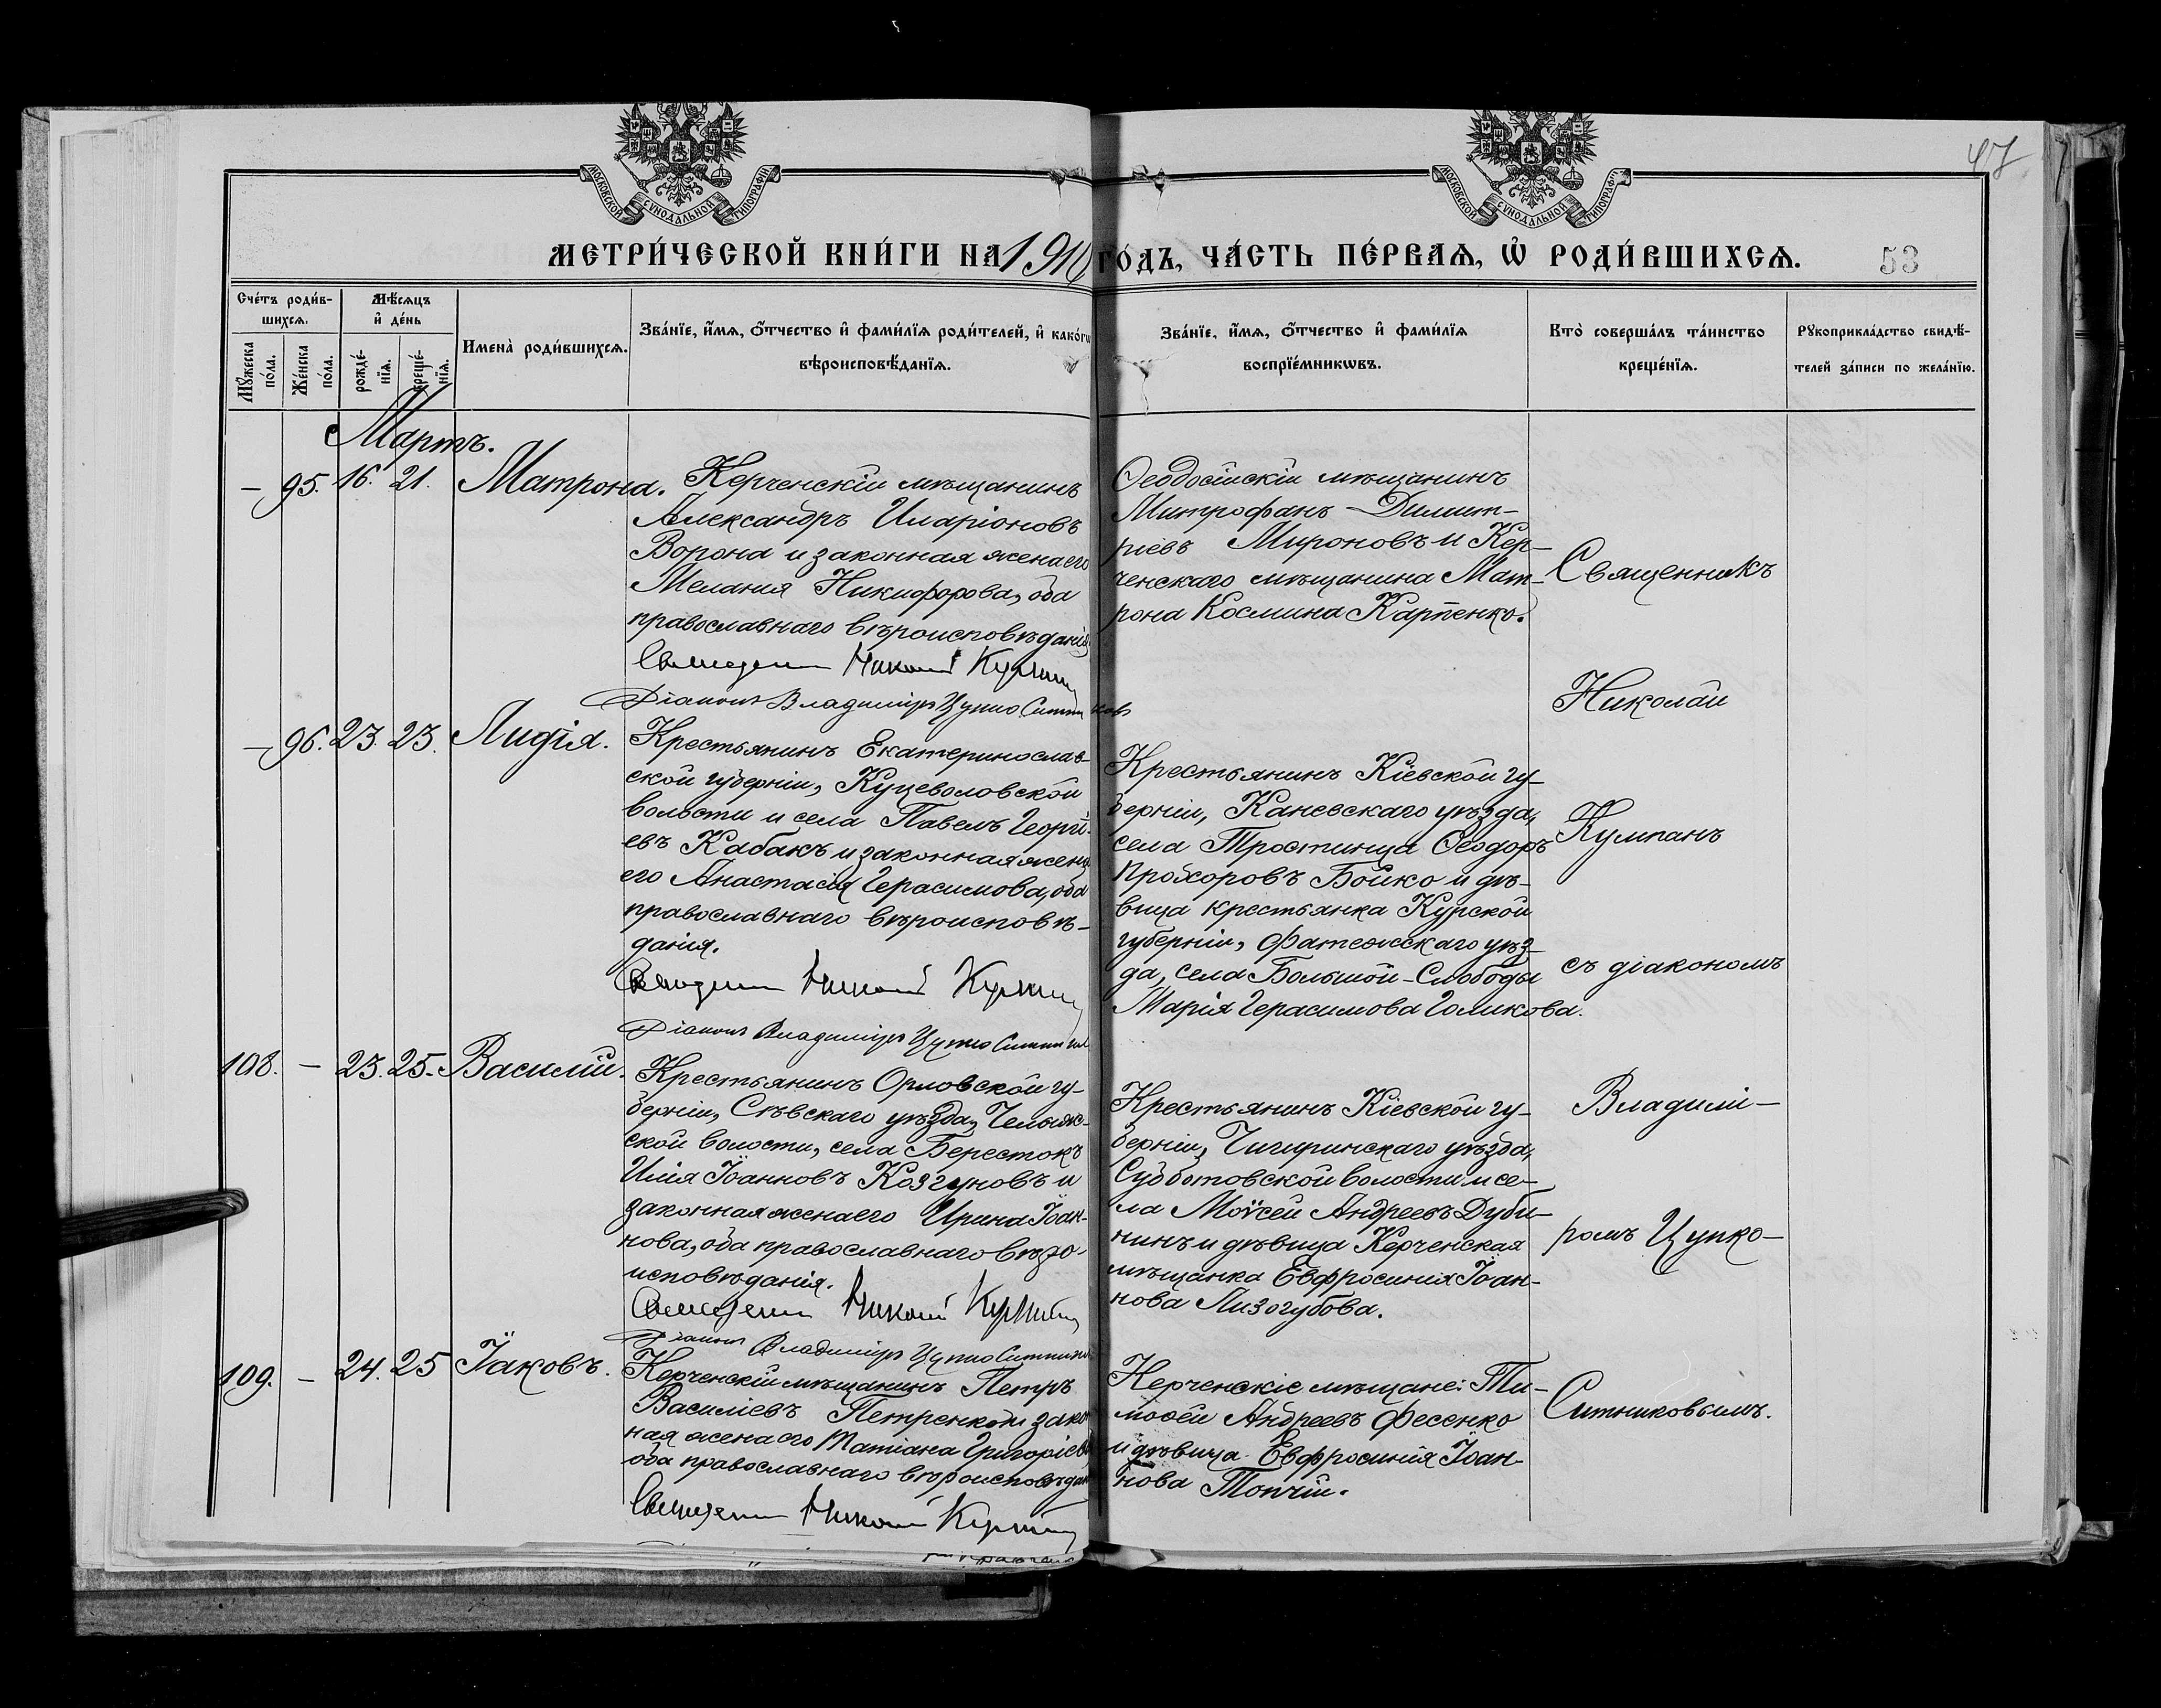 47
МОСКОВСКОЙ СѴНОДАЛЬНОЙ ТИПОГРАФІИ
МОСКОВСКОЙ СѴНОДАЛЬНОЙ ТИПОГРАФІИ
МЕТРИ́ЧЕСКОЙ КНИ́ГИ НА 1910 ГО́ДЪ, ЧА́СТЬ ПЕ́РВАѦ, Ѡ҆ РОДИ́ВШИХСѦ. 53
Сче́тъ роди́в-
шихсѧ.
Мꙋ́жеска
по́ла.
Же́нска
по́ла.
Мѣ́сѧцъ
и҆ де́нь
рожде́-
нїѧ.
креще́-
нїѧ.
Имена̀ роди́вшихсѧ.
Зва́нїе, и҆́мѧ, ѻ҆́тчество и҆ фами́лїѧ роди́телей, и҆ како́гѡ
вѣроисповѣ́данїѧ.
Зва́нїе, и҆́мѧ, ѻ҆́тчество и҆ фами́лїѧ
воспрїе́мникѡвъ.
Кто̀ соверша́лъ та́инство
креще́нїѧ.
Рꙋкоприкла́дство свидѣ́-
телей за́писи по жела́нїю.
Мартъ.
— 95. 16. 21. Матрона.
Керченскій мѣщанинъ
Александръ Иларіоновъ
Ворона и законная жена его
Мелания Никифорова, оба
православнаго вѣроисповѣданія.
Священник Николай Кумпан
Діаконъ Владиміръ Цупко Ситников
Ѳеодосійскій мѣщанинъ
Митрофанъ Димит-
ріевъ Мироновъ и Кер-
ченскаго мѣщанина Мат-
рона Космина Карпенко.
— 96. 23. 23. Лидія.
Крестьянинъ Екатеринослав-
ской губерніи, Куцеволовской
волости и села Павелъ Георгі-
евъ Кабакъ и законная жена
его Анастасія Герасимова, оба
православнаго вѣроисповѣ-
данія.
Священник Николай Кумпан
Діаконъ Владиміръ Цупко Ситников
Крестьянинъ Кіевской гу-
берніи, Каневскаго уѣзда,
села Тростинца Ѳеодоръ
Прохоровъ Бойко и дѣ-
вица крестьянка Курской
губерніи, Фатежскаго уѣз-
да, села Большой-Слободы
Марія Герасимова Голикова.
108. — 23. 25. Василій.
Крестьянинъ Орловской гу-
берніи, Сѣвскаго уѣзда,
ской волости, села Берестокъ
Илія Іоанновъ Козгуновъ и
законная жена его Ирина Іоан-
нова, оба православнаго вѣро-
исповѣданія.
Священник Николай Кумпан
Діаконъ Владиміръ Цупко Ситников
Крестьянинъ Кіевской гу-
берніи, Чигиринскаго уѣзда,
Субботовской волости и се-
ла Моѵсей Андреевъ Дуби-
нинъ и дѣвица Керченская
мѣщанка Евфросинія Іоан-
нова Лизогубова.
109. — 24. 25 Іаковъ.
Керченскій мѣщанинъ Петръ
Василіевъ Петренко и закон
ная жена его Татіана Григоріева
оба православнаго вѣроисповѣдан
Священник Николай Кумпан
Керченскіе мѣщане: Ти-
моѳей Андреевъ Фесенко
и дѣвица Евфросинія Іоан-
нова Топчій.
Священникъ
Николай
Кумпанъ
съ діакономъ
Владимі-
ромъ Цупко-
Ситниковымъ.